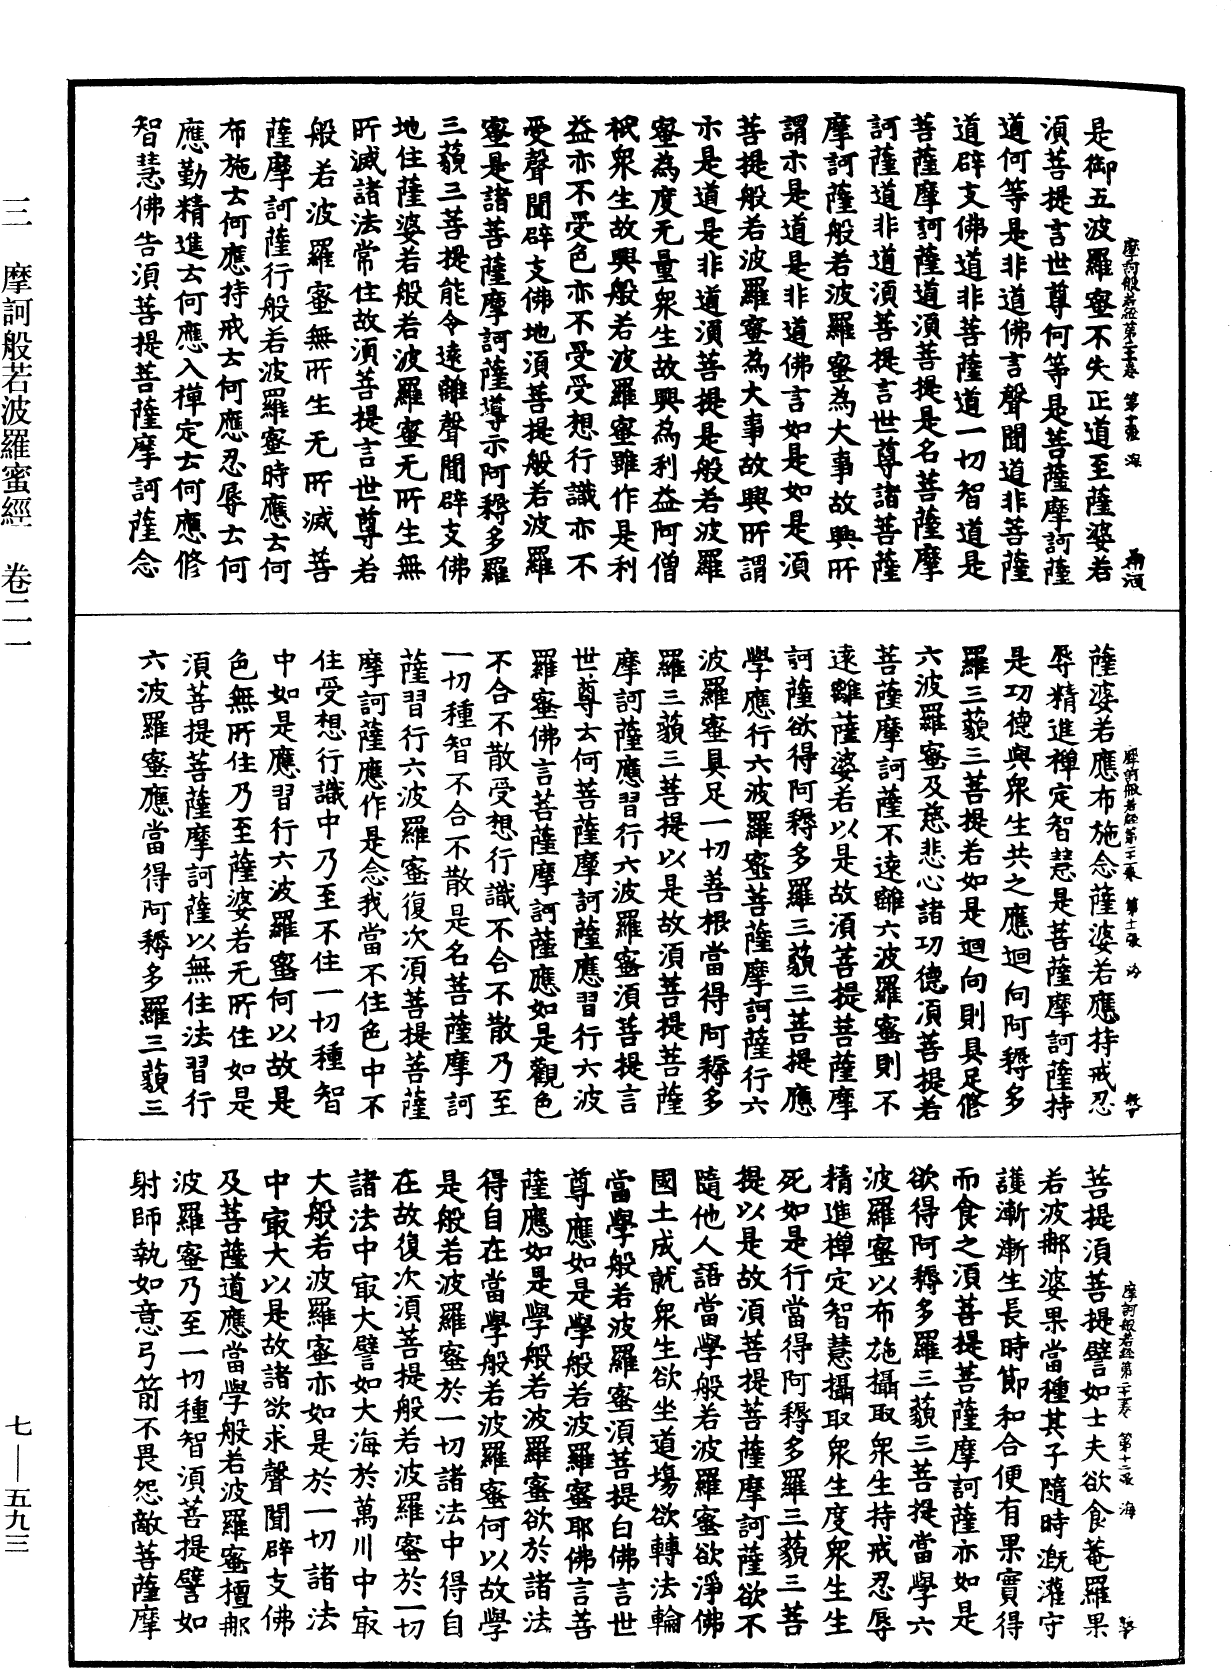 是御五波羅蜜不失正道至薩婆若
湏菩提言世尊何等是菩薩摩訶薩
道何等是非道佛言聲聞道非菩薩
道辟支佛道非菩薩道一切智道是
菩薩摩訶薩道湏菩提是名菩薩摩
訶薩道非道湏菩提言世尊諸菩薩
摩訶薩般若波羅蜜為大事故興所
謂示是道是非道佛言如是如是湏
菩提般若波羅蜜為大事故興所謂
示是道是非道湏菩提是般若波羅
蜜為度无量衆生故興為利益阿僧
祇衆生故興般若波羅蜜雖作是利
益亦不受色亦不受受想行識亦不
受聲聞辟支佛地湏菩提般若波羅
蜜是諸菩薩摩訶薩導示阿耨多羅
三藐三菩提能令遠離聲聞辟支佛
地住薩婆若般若波羅蜜无所生無
所滅諸法常住故湏菩提言世尊若
般若波羅蜜無所生无所滅菩
薩摩訶薩行般若波羅蜜時應云何
布施云何應持戒云何應忍辱云何
應勤精進云何應入禪定云何應修
智慧佛告湏菩提菩薩摩訶薩念
摩訶般若經第二十一卷 第十張 海
薩婆若應布施念薩婆若應持戒忍
辱精進禪定智慧是菩薩摩訶薩持
是功德與衆生共之應迴向阿耨多
羅三藐三菩提若如是迴向則具足修
六波羅蜜及慈悲心諸功德湏菩提若
菩薩摩訶薩不遠離六波羅蜜則不
遠離薩婆若以是故湏菩提菩薩摩
訶薩欲得阿耨多羅三藐三菩提應
學應行六波羅蜜菩薩摩訶薩行六
波羅蜜具足一切善根當得阿耨多
羅三藐三菩提以是故湏菩提菩薩
摩訶薩應習行六波羅蜜湏菩提言
世尊云何菩薩摩訶薩應習行六波
羅蜜佛言菩薩摩訶薩應如是觀色
不合不散受想行識不合不散乃至
一切種智不合不散是名菩薩摩訶
薩習行六波羅蜜復次湏菩提菩薩
摩訶薩應作是念我當不住色中不
住受想行識中乃至不住一切種智
中如是應習行六波羅蜜何以故是
色無所住乃至薩婆若无所住如是
湏菩提菩薩摩訶薩以無住法習行
六波羅蜜應當得阿耨多羅三藐三
摩訶般若經第二十一卷 第十一張 海
菩提湏菩提譬如士夫欲食菴羅果
若波那婆果當種其子隨時溉灌守
護漸漸生長時節和合便有果實得
而食之湏菩提菩薩摩訶薩亦如是
欲得阿耨多羅三藐三菩提當學六
波羅蜜以布施攝取衆生持戒忍辱
精進禪定智慧攝取衆生度衆生生
死如是行當得阿耨多羅三藐三菩
提以是故湏菩提菩薩摩訶薩欲不
隨他人語當學般若波羅蜜欲淨佛
國土成就衆生欲坐道場欲轉法輪
當學般若波羅蜜湏菩提白佛言世
尊應如是學般若波羅蜜耶佛言菩
薩應如是學般若波羅蜜欲於諸法
得自在當學般若波羅蜜何以故學
是般若波羅蜜於一切諸法中得自
在故復次湏菩提般若波羅蜜於一切
諸法中㝡大譬如大海於萬川中㝡
大般若波羅蜜亦如是於一切諸法
中㝡大以是故諸欲求聲聞辟支佛
及菩薩道應當學般若波羅蜜檀那
波羅蜜乃至一切種智湏菩提譬如
射師執如意弓箭不畏怨敵菩薩摩
摩訶般若經第二十一卷 第十二張 海
三 摩訶般若波羅蜜經 卷二一
七—五九三